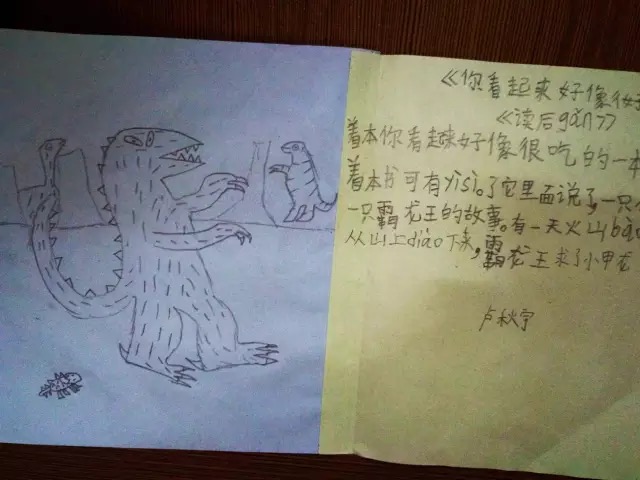 《你看起来好像很好
《读后gǎn》
着本你看起来好像很吃的一本
着本书可有yìsi。了它里面说了,一只
一只霸龙王的故事。有一天火山bào
从山上diào下来,霸龙王求了小甲龙
卢秋宇